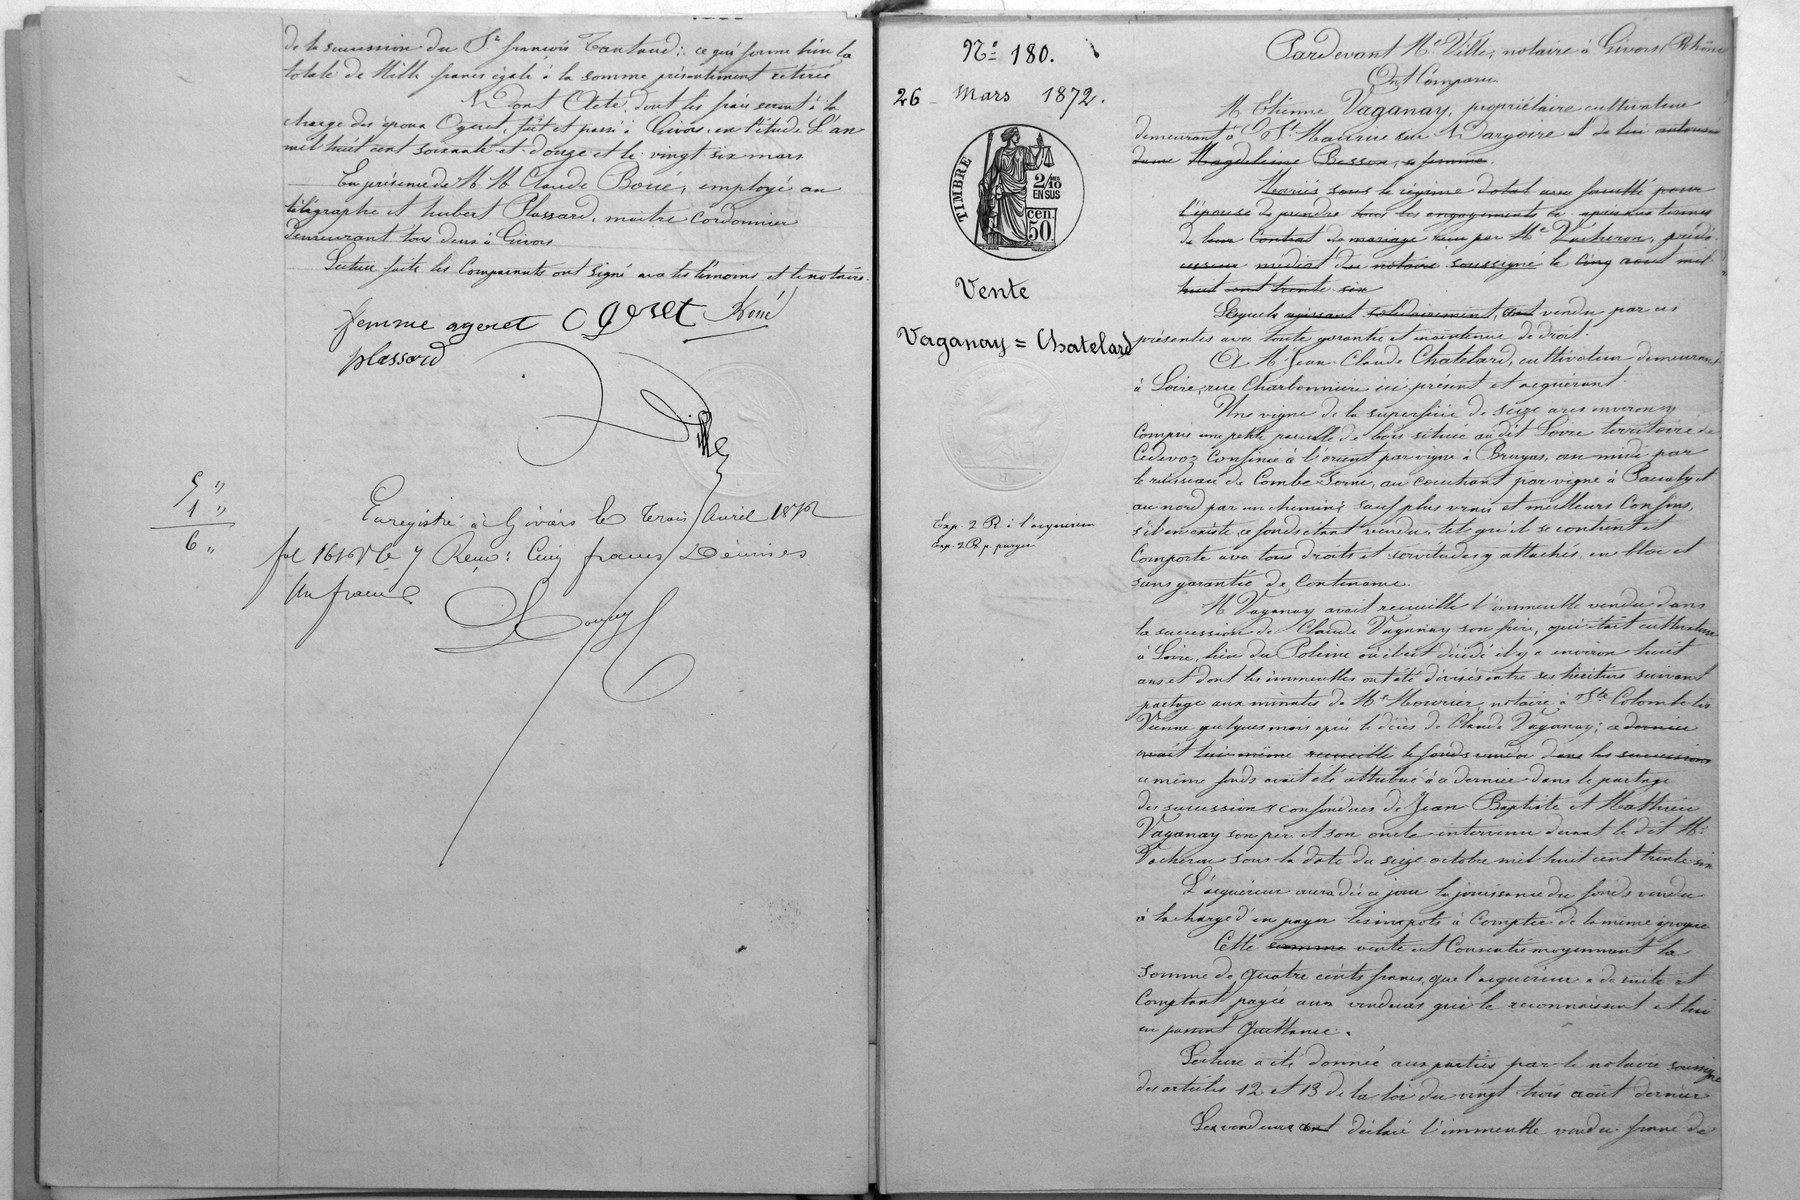 de la succession du Sr françois Tantaud: ce qui forme bien la
totale de Mille francs égale à la somme présentement retirée
Dont Acte, dont les frais seront à la
charge des époux Ogeret, fait et passé à Givors, en l'étude L'an
mil huit cent soixante et douze et le vingt six mars
En présence de M M Claude Boué, employé au
télégraphe et hubert Plassard, maître Cordonnier
Demeurant tous deux à Givors
Lecture faite les Comparants ont signé avec les témoins et le notaire.
femme ogeret Ogeret Boué
plassard
Ville
5 "
1 "
6 "
Enregistré à Givors le trois Avril 1872
fol 161 Vo Ce 7 Reçu: Cinq francs Décimes
Un franc
No 180.
26 Mars 1872.
TIMBRE
2/10
EN SUS
50 cen.
Vente
Vaganay = Chatelard
Exp. 2 R. à l'acquéreur
Exp. 2 R. p. purger
Pardevant Me Ville, notaire à Givors (Rhône
Ont Comparu
M Etienne Vaganay, propriétaire cultivateur
demeurant à St Maurice sur Dargoire et de lui autorisée
dame Magdeleine Besson, sa femme.
Mariés sous le régime dotal avec faculté pour
l'épouse de prendre tous les engagements &a après aux termes
de leur Contrat de mariage reçu par Me Vacheron, prédé-
cesseur médiat du notaire soussigné le cinq août mil
huit cent trente six
Lequel agissant solidairement, ont vendu par ces
présentes avec toute garantie et maintenue de droit.
A M Jean Claude Chatelard, cultivateur demeurant
à Loire, rue Charbonnière ici présent et acquérant.
Une vigne de la superficie de seize ares environ y
Compris une petite parcelle de bois située au dit Loire territoire de
Cedevoz Confinée à l'orient par vigne à Bruyas, au midi par
le ruisseau de Combe Sorni, au couchant par vigne à Pauly et
au nord par un chemin; sauf plus vrais et meilleurs Confins,
s'il en existe, ce fonds étant vendu, tel qu'il se contient et
Comporte avec tous droits et servitudes y attachés, en bloc et
sans garantie de Contenance.
M Vaganay avait recueilli l'immeuble vendu dans
la succession de Claude Vaganay son frère, qui était cultivateur
à Loire, lieu du Poleine où il est décédé il y a environ huit
ans et dont les immeubles ont été divisés entre ses héritiers suivant
partage aux minutes de Me Mourier, notaire à Ste Colombe lès
Vienne quelques mois après le décès de Claude Vaganay; ce dernier
avait lui-même recueilli le fonds vendu dans les successions
ce même fonds avait été attribué à ce dernier dans le partage
des successions confondues de Jean Baptiste et Mathieu
Vaganay son père et son oncle intervenu devant le dit Me
Vacheron sous la date du seize octobre mil huit cent trente six
L'acquéreur aura dès ce jour la jouissance du fonds vendu
à la charge d'en payer les impôts à Compter de la même époque
Cette somme vente est Consentie moyennant la
somme de quatre cents francs, que l'acquéreur a de suite et
Comptant payée aux vendeurs qui le reconnaissent et lui
en passent quittance.
Lecture a été donnée aux parties par le notaire soussigné
des articles 12 et 13 de la loi du vingt trois août dernier
Les vendeurs ont déclaré l'immeuble vendu franc de